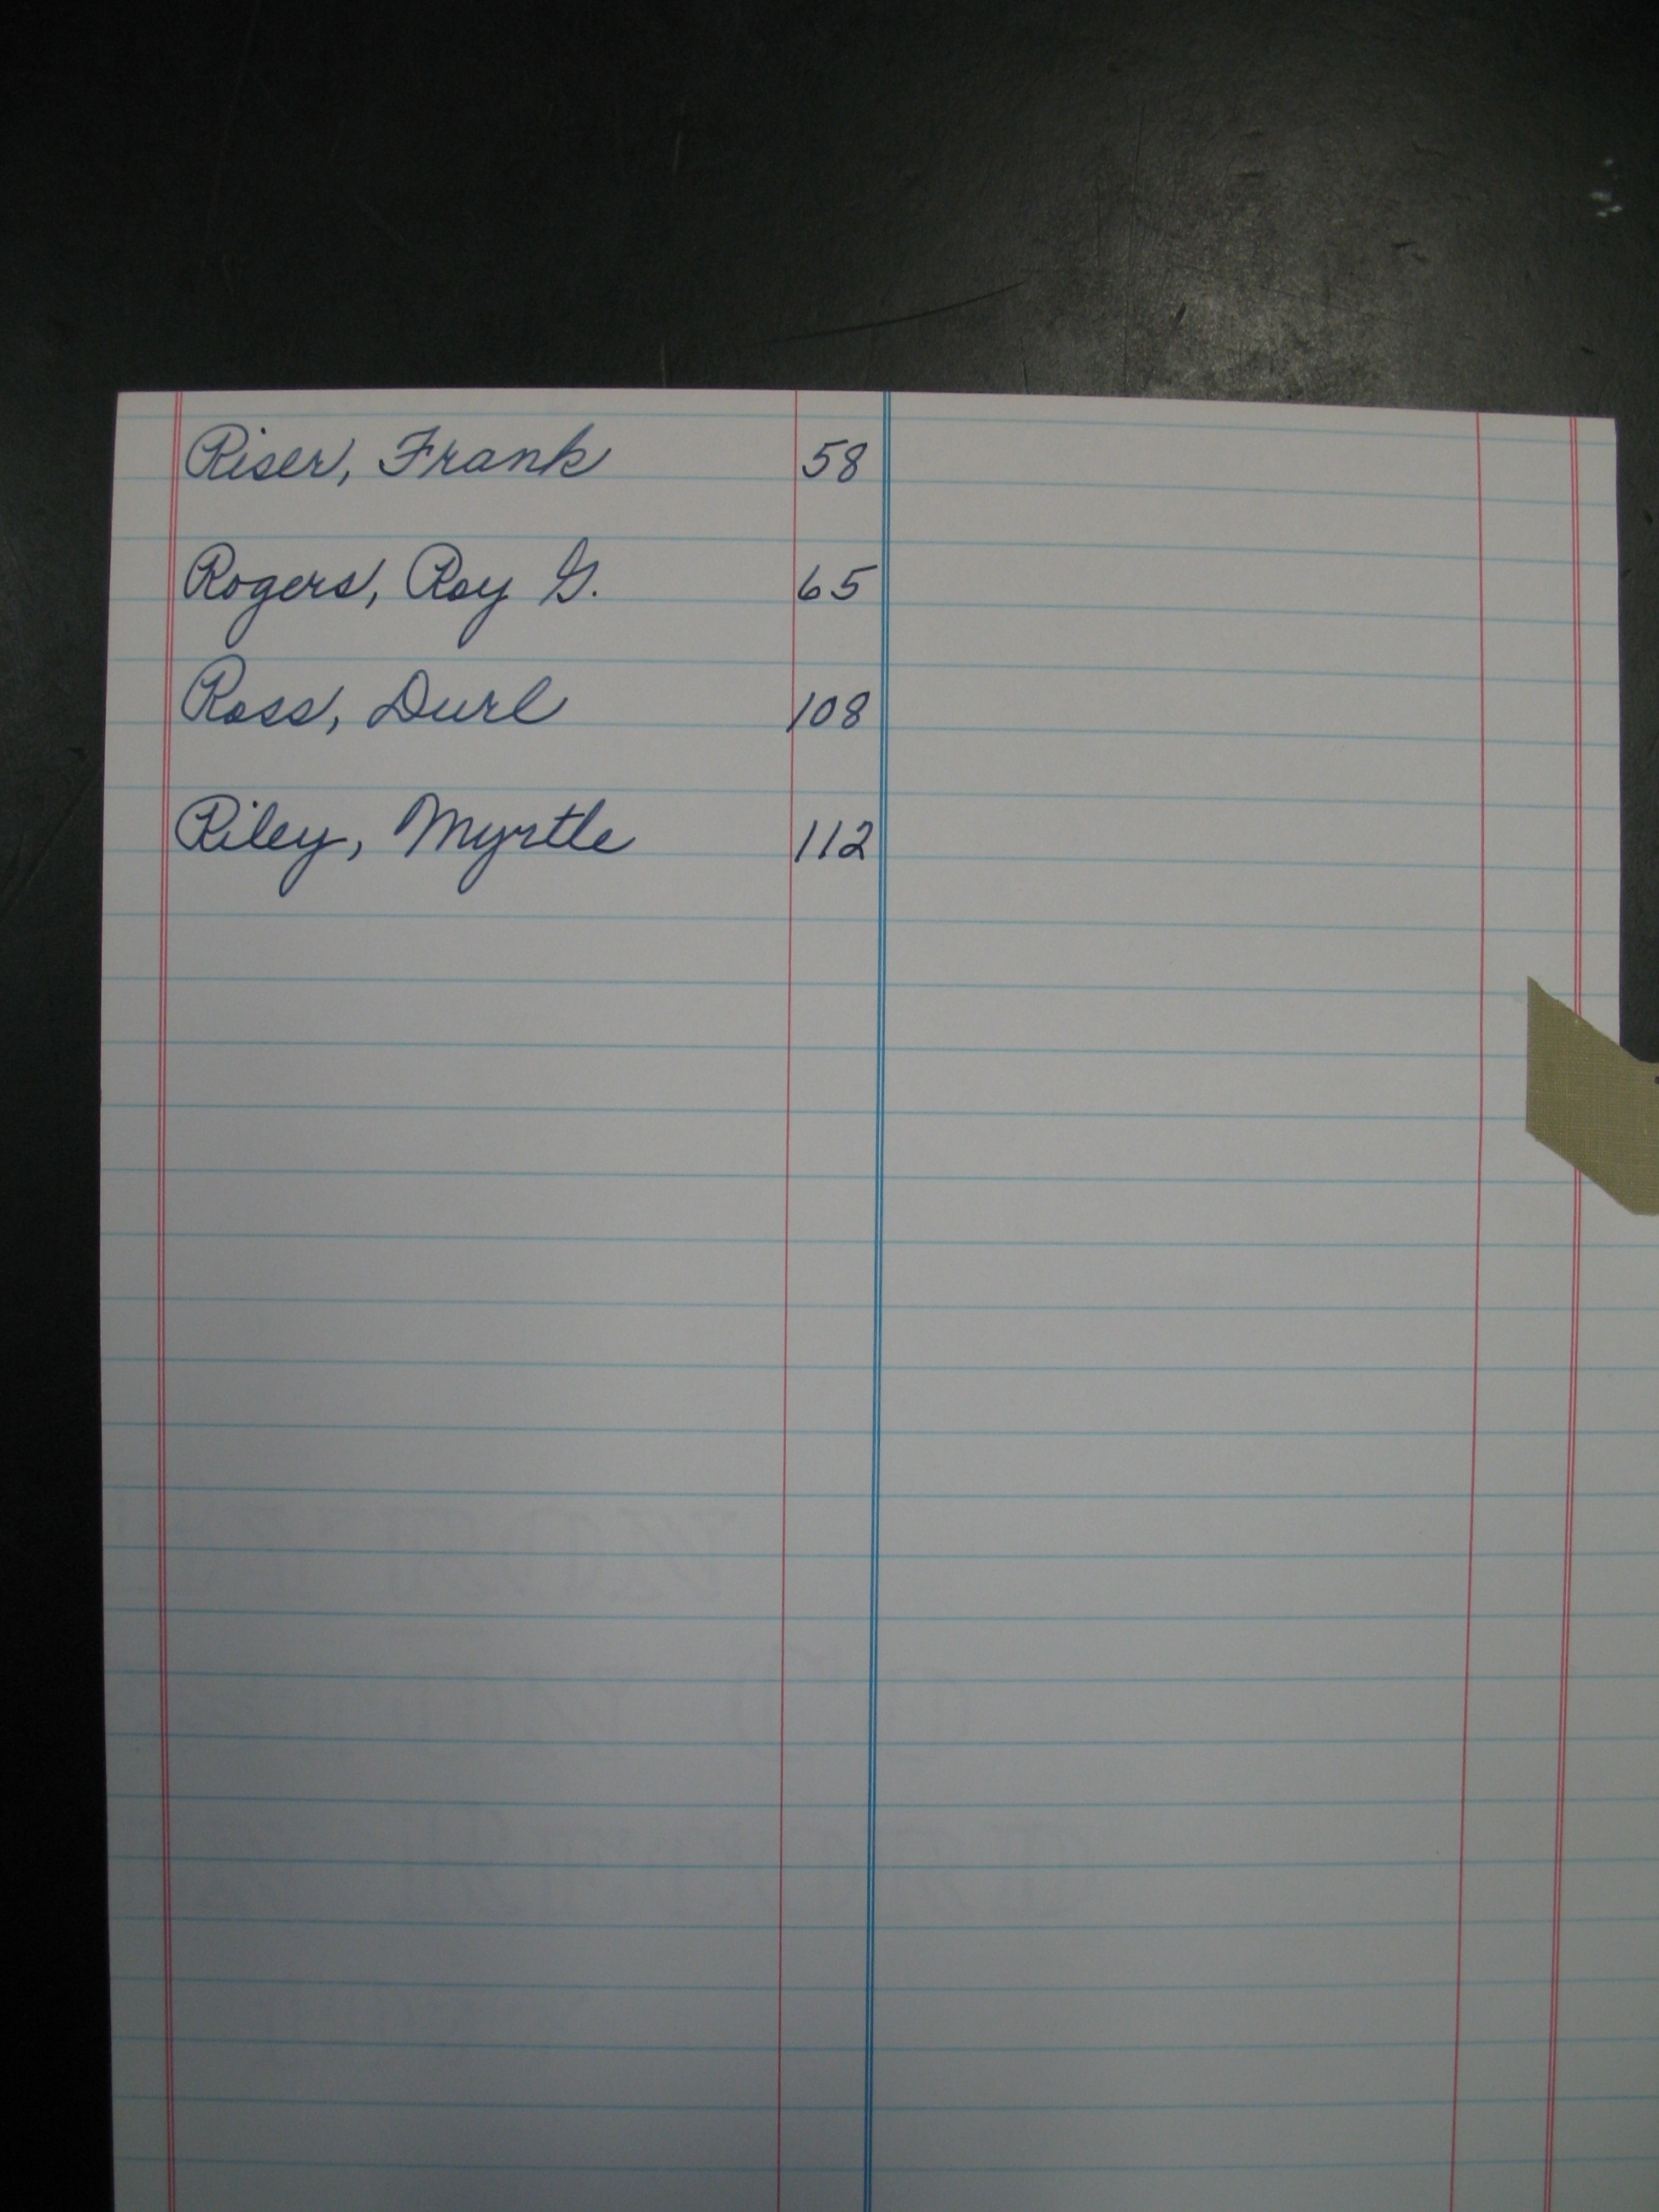 Riser, Frank 58
Rogers, Roy G. 65
Ross, Durl 108
Riley, Myrtle 112